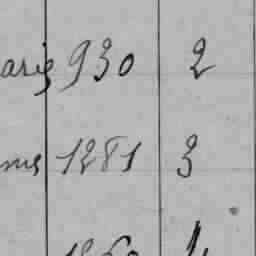 aris 930 2
ms 1281 3